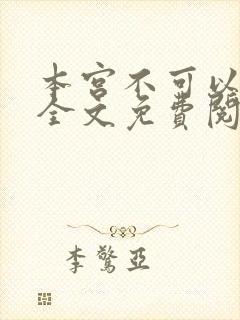 本宫不可以
全文免费阅
李惊亚